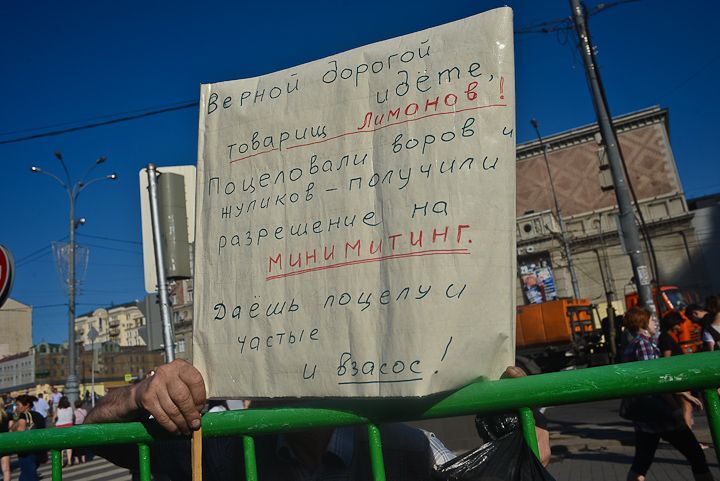 Верной дорогой
идёте,
товарищ Лимонов!
Поцеловали воров и
жуликов - получили
разрешение на
минимитинг.
Даёшь поцелуи
частые
и взасос!